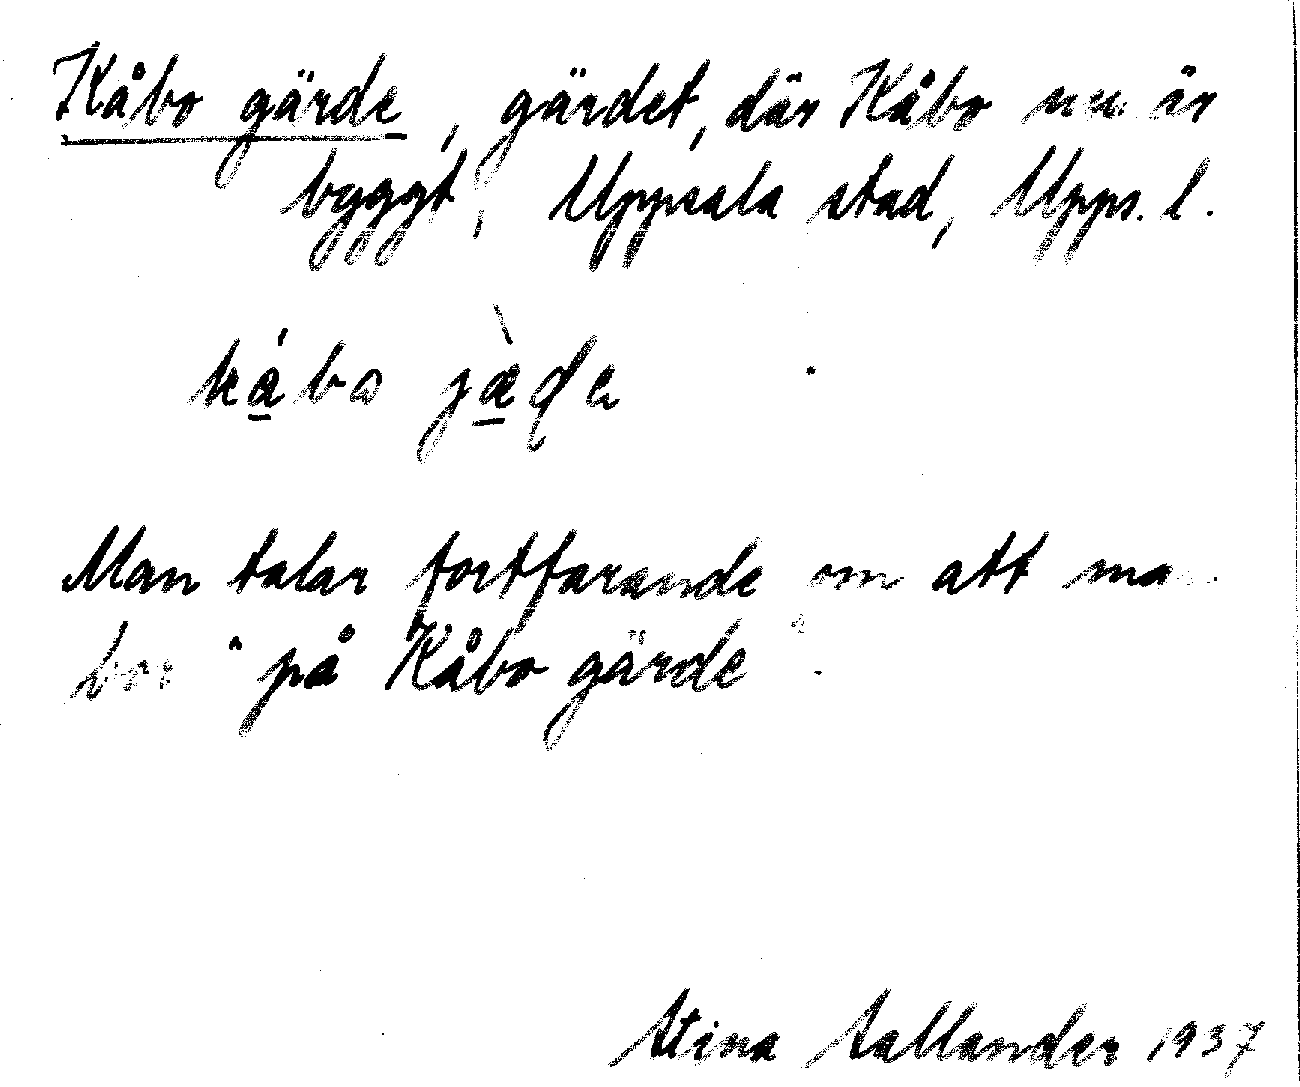 Kåbo gärde, gärdet, där Kåbo nu är
byggt, Uppsala stad, Upps. l.
Man talar fortfarande om att man
bor "på Kåbo gärde".
Stina Sallander 1937